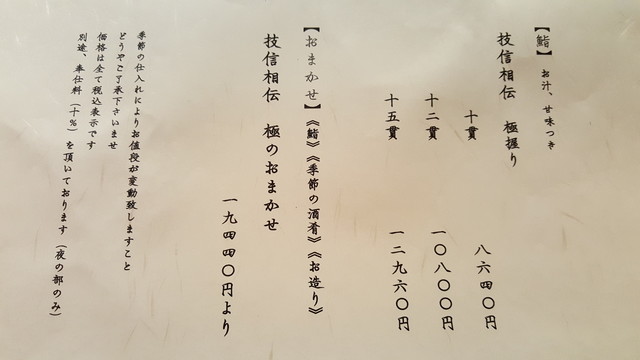 【鮨】 お汁、甘味つき
技信相伝 極握り
十貫 八六四〇円
十二貫 一〇八〇〇円
十五貫 一二九六〇円
【おまかせ】《鮨》《季節の酒肴》《お造り》
技信相伝 極のおまかせ
一九四四〇円より
季節の仕入れによりお値段が変動致しますこと
どうやご了承下さいませ
価格は全て税込表示です
別途、奉仕料（十％）を頂いております（夜の部のみ）